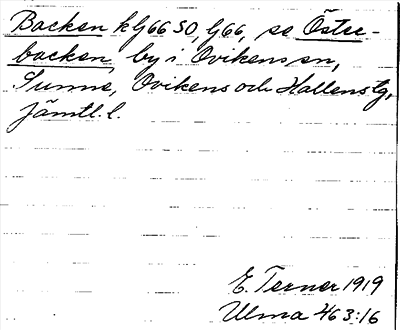 Backen kG66 SO, G66, se Öster-
backen, by i Ovikens sn,
Sunne, Ovikens och Hallens tg,
Jämtl. l.
E. Terner 1919
Ulma 463:16